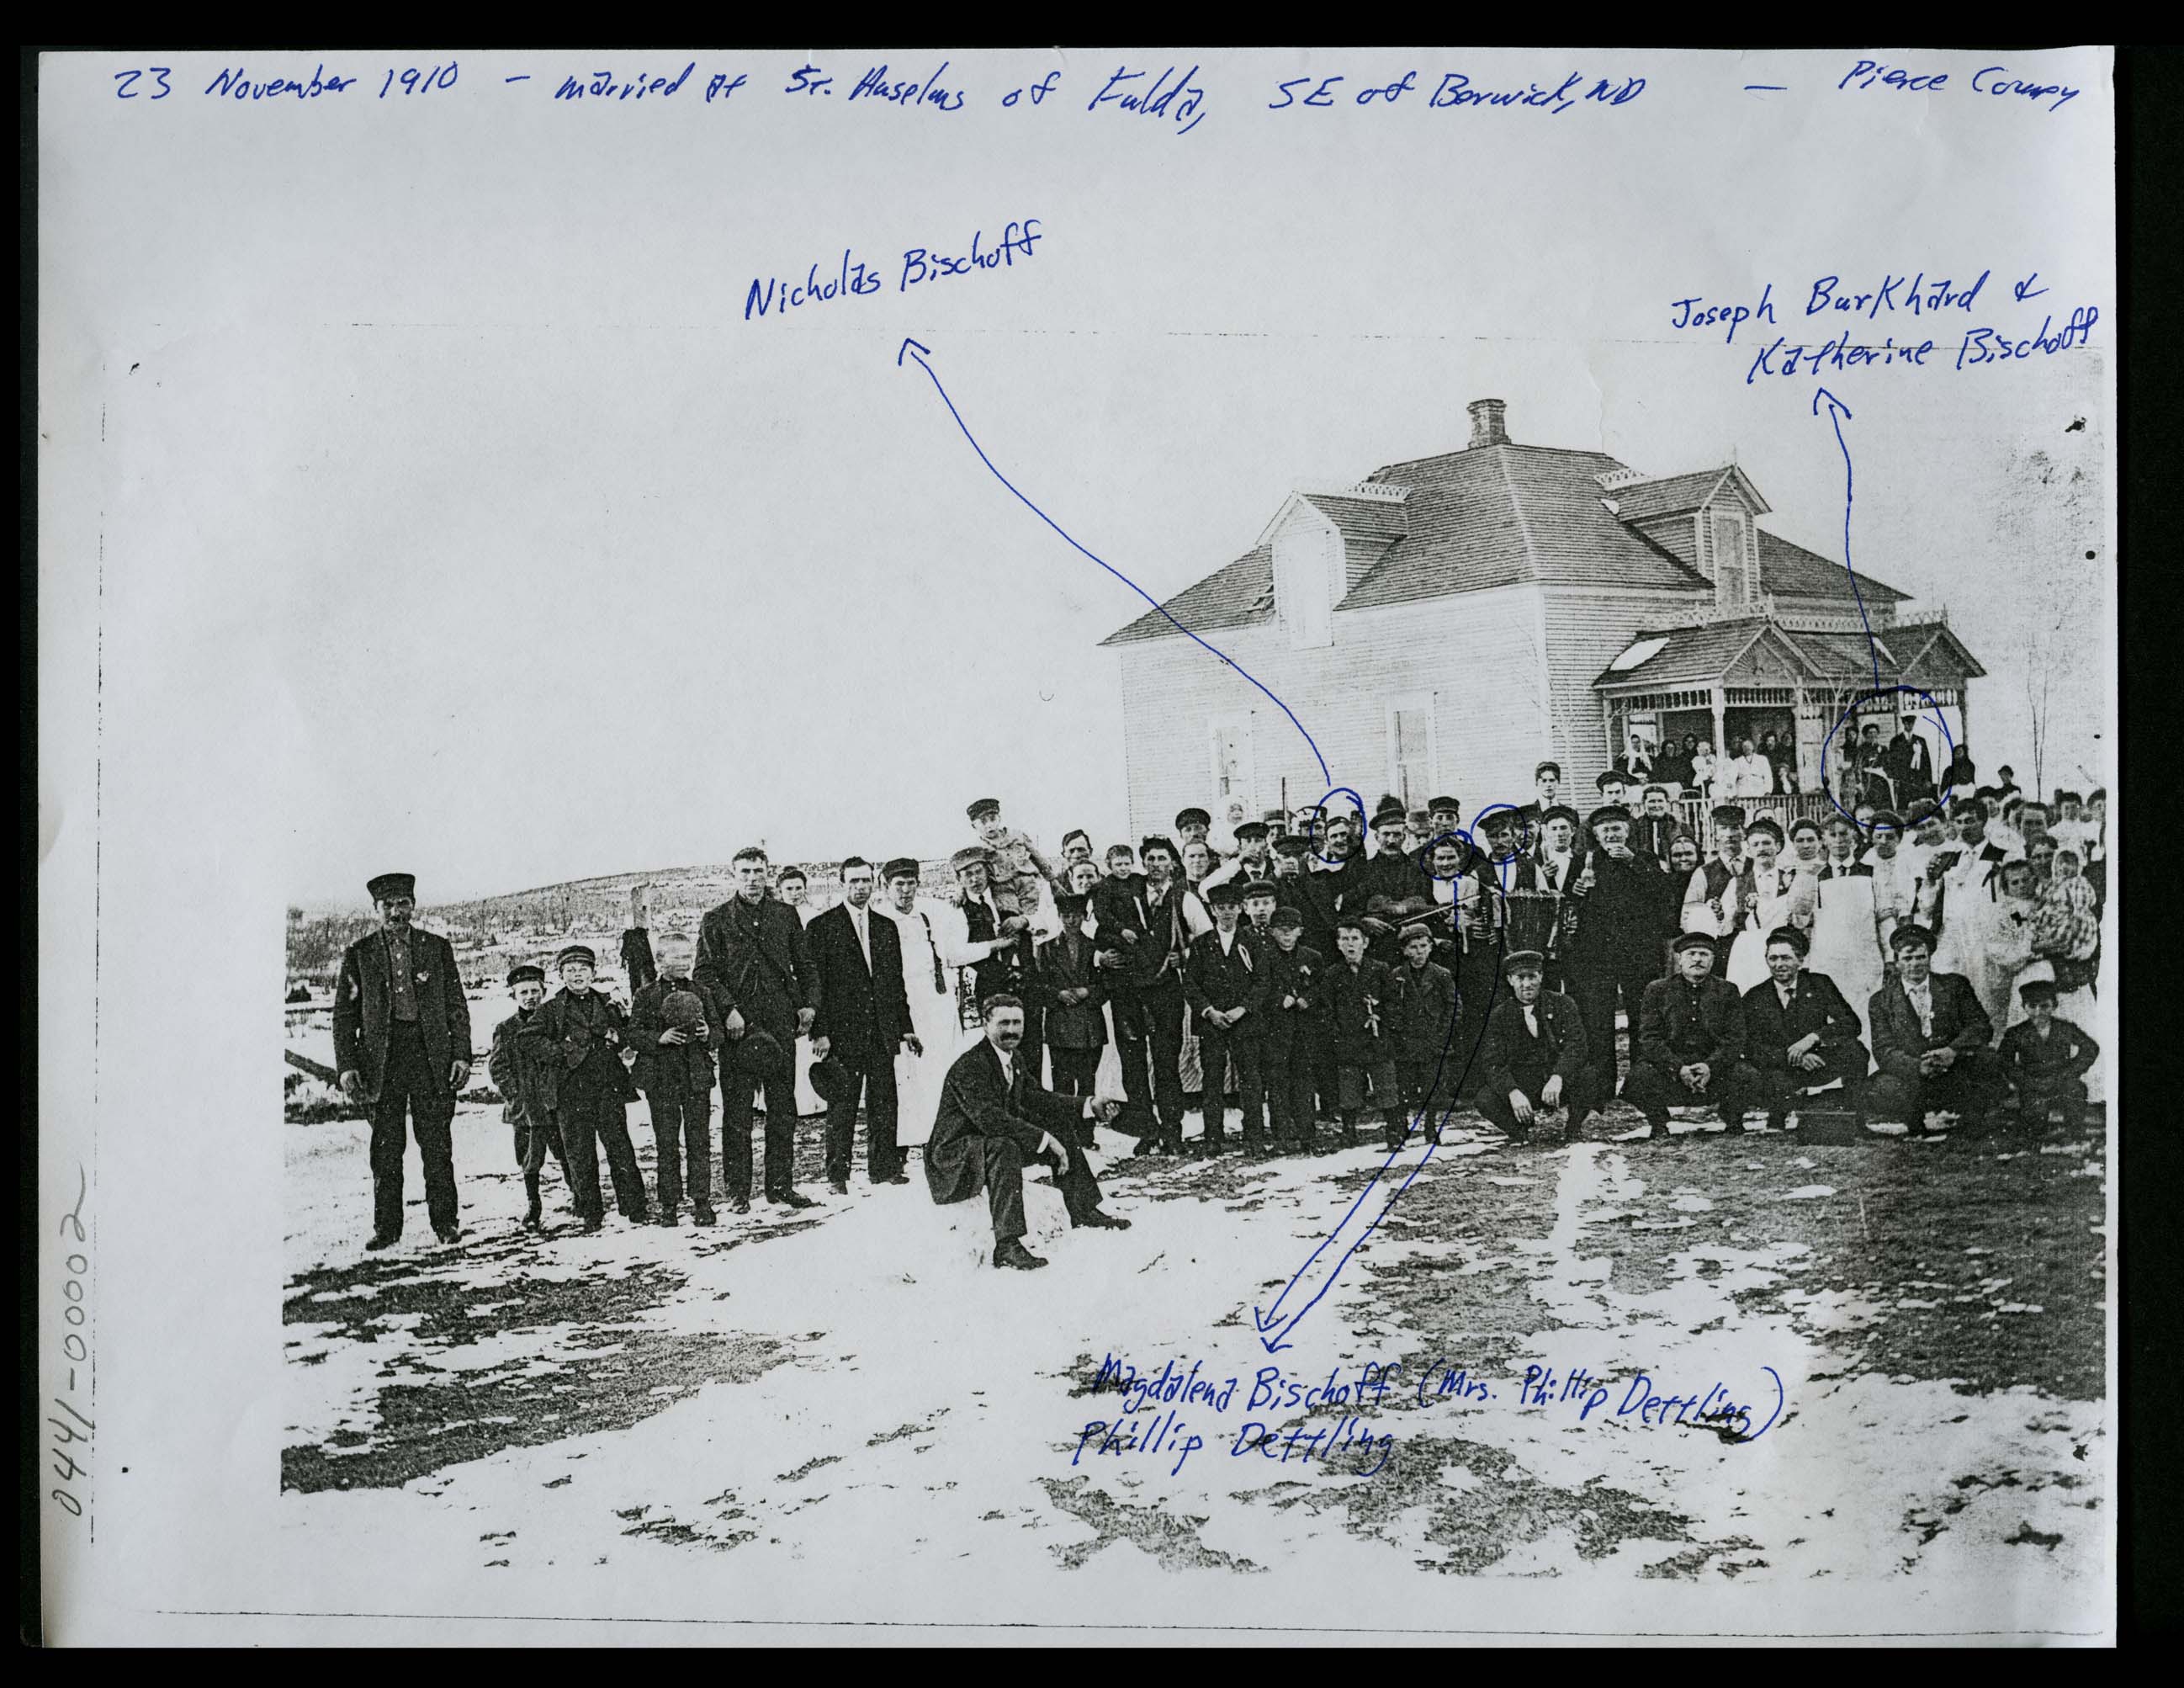 23 November 1910 - married at St. Anselms of Fulda, SE of Berwick, ND — Pierce County
Nicholas Bischoff
Joseph Burkhard &
Katherine Bischoff
Magdalena Bischoff (Mrs. Phillip Dettling)
Phillip Dettling
0441-00002